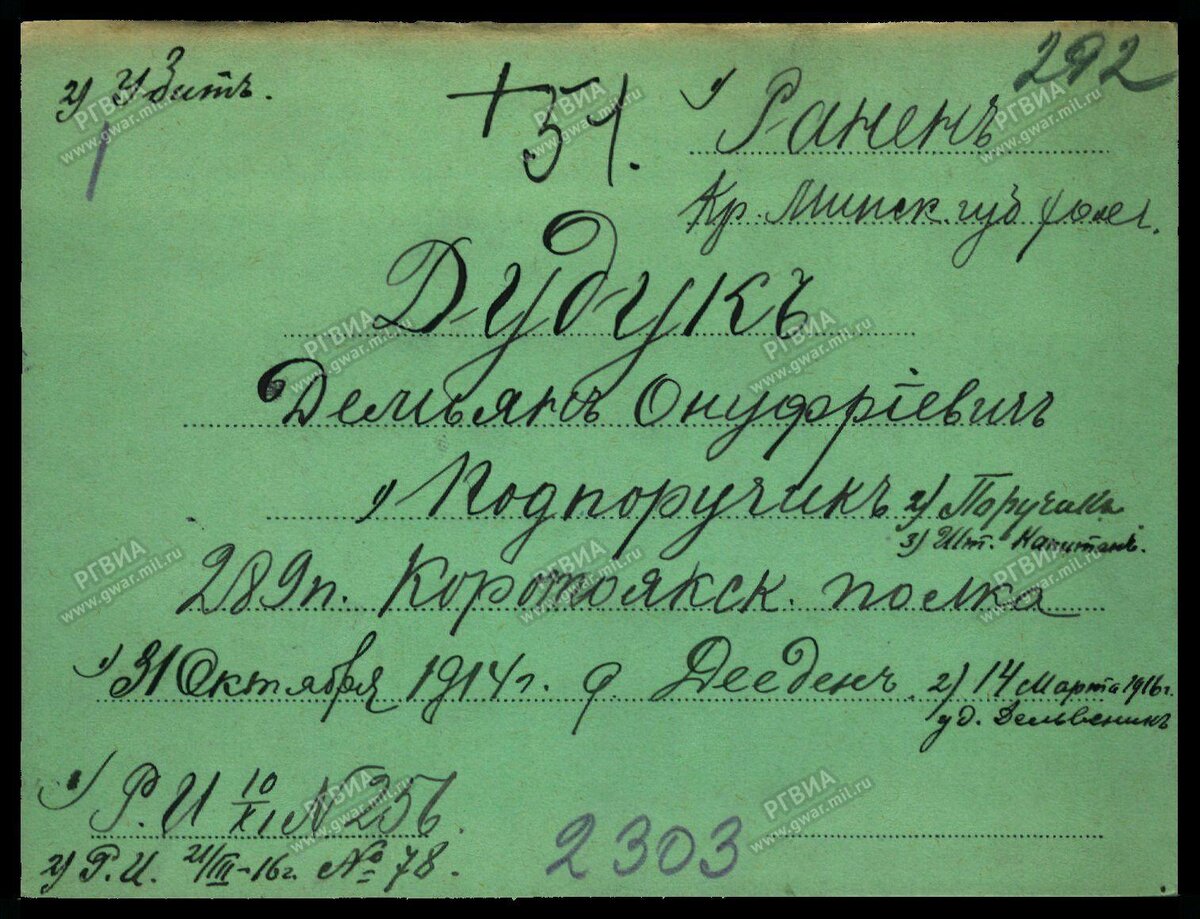 292
2) Убитъ.
+ 51.
1) Раненъ
Кр. Минск. губ
Дудукъ
Демьянъ Онуфріевичъ
1) Подпоручикъ 2) Поручикъ
3) Шт. Капитанъ.
289 п. Коротоякск. полка
1) 31 Октября 1914 г. ф. Дееденъ. 2) 14 Марта 1916 г.
у д. Вельвеникъ
1) Р. И 10/XI № 256.
2) Р. И. 21/III-16 г. № 78.
2303
РГВИА
www.gwar.mil.ru